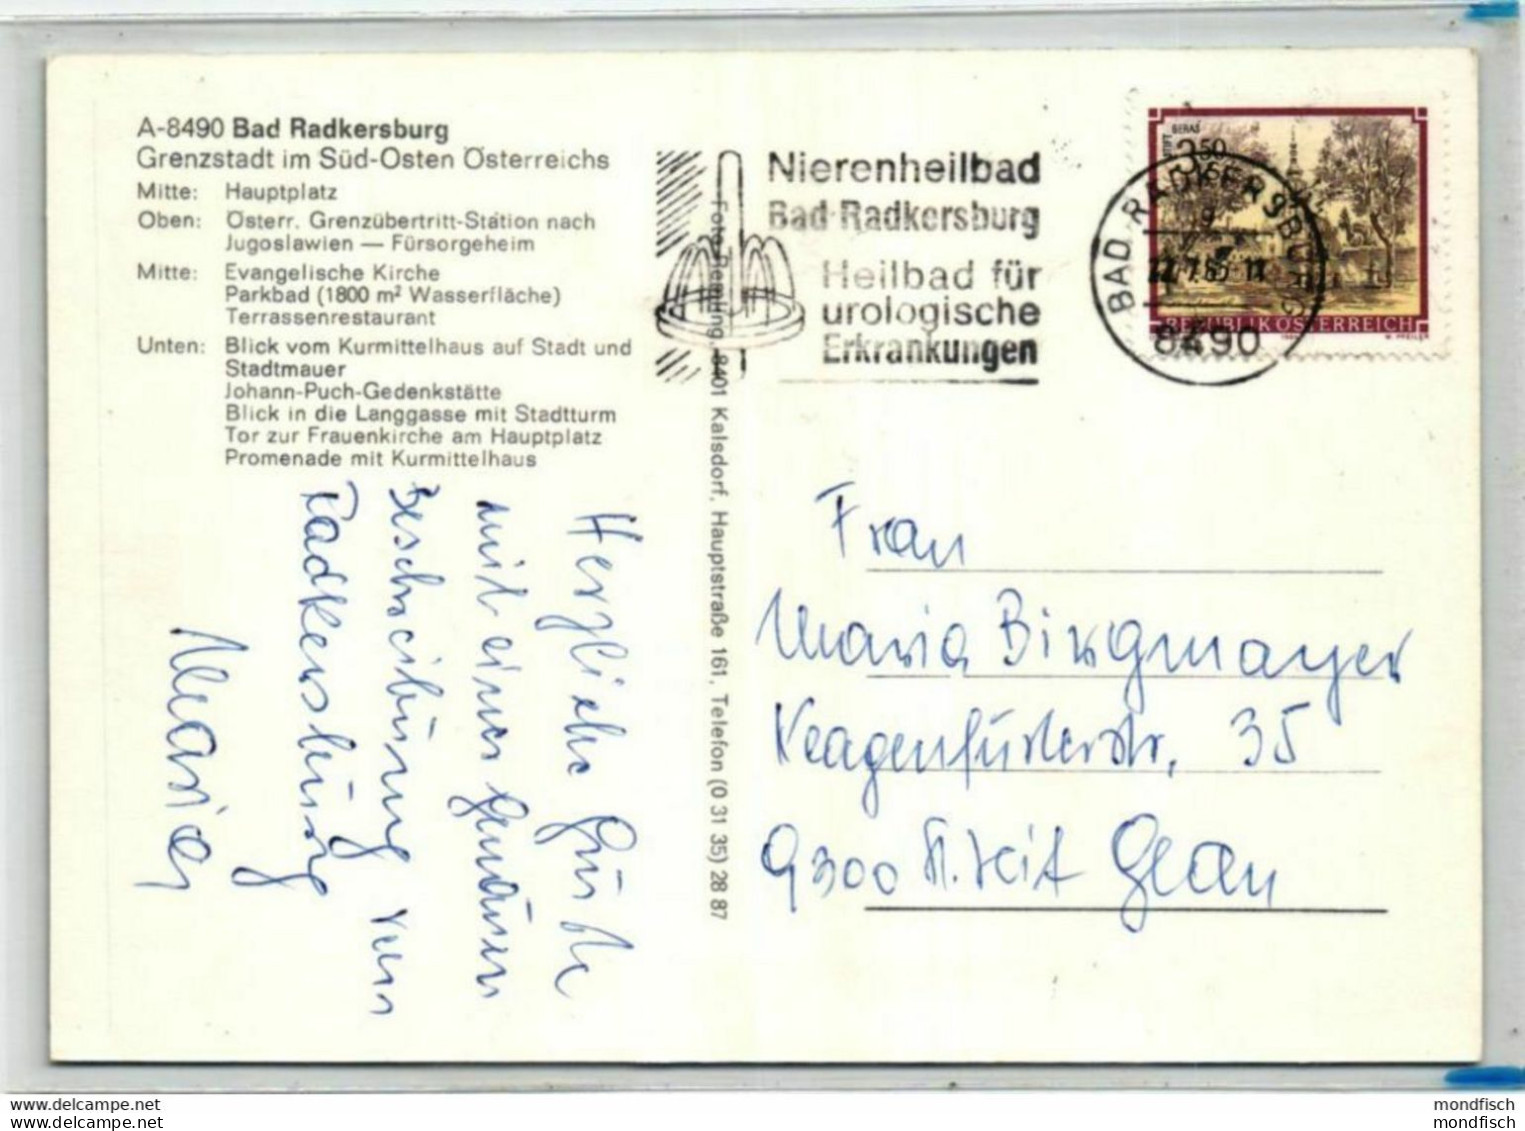 A-8490 Bad Radkersburg
Grenzstadt im Süd-Osten Österreichs
Mitte: Hauptplatz
Oben: Österr. Grenzübertritt-Station nach
Jugoslawien — Fürsorgeheim
Mitte: Evangelische Kirche
Parkbad (1800 m² Wasserfläche)
Terrassenrestaurant
Unten: Blick vom Kurmittelhaus auf Stadt und
Stadtmauer
Johann-Puch-Gedenkstätte
Blick in die Langgasse mit Stadtturm
Tor zur Frauenkirche am Hauptplatz
Promenade mit Kurmittelhaus
Herzliche Grüße
mit einer genauen
Beschreibung von
Radkersburg
Maria
8401 Kalsdorf, Hauptstraße 161, Telefon (0 31 35) 28 87
Nierenheilbad
Bad Radkersburg
Heilbad für
urologische
Erkrankungen
BAD RADKERSBURG
8490
STIFT GERAS
3.50
REPUBLIK ÖSTERREICH
Frau
Maria Birgmayer
35
9300 St. Veit Glan
mondfisch
mondfisch
mondfisch
mondfisch